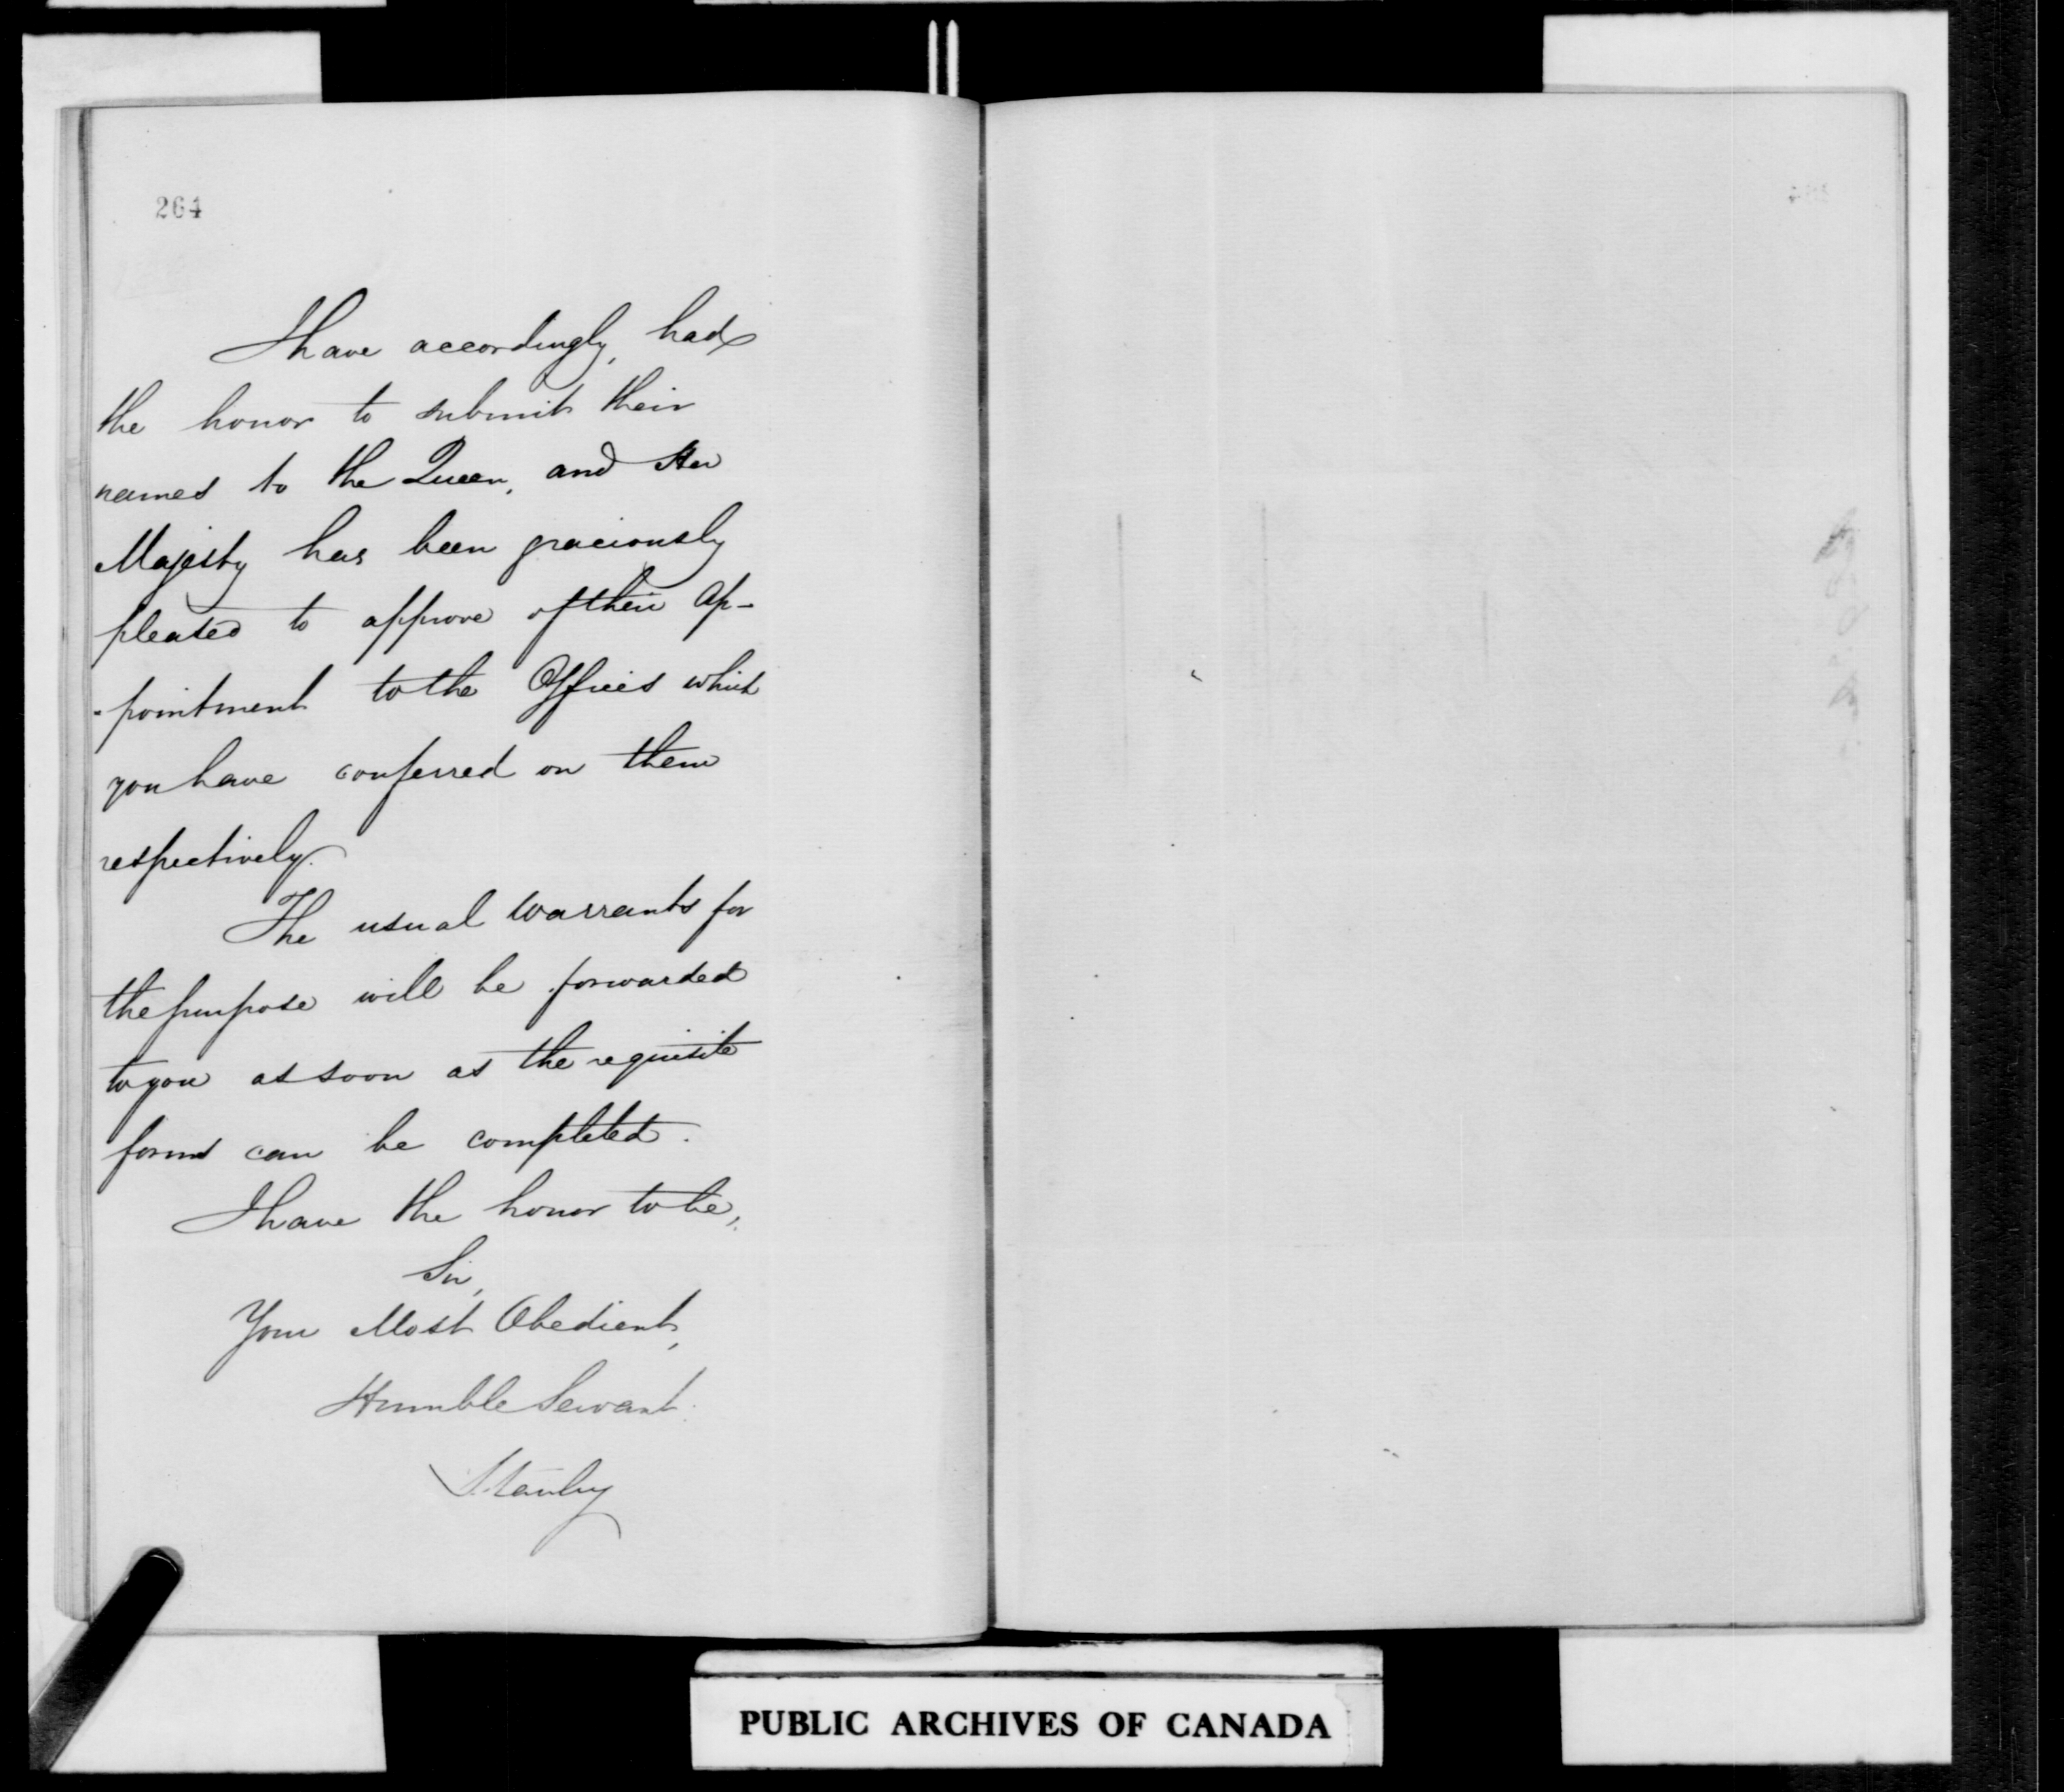 264
I have accordingly, had
the honor to submit their
names to the Queen, and Her
Majesty has been graciously
pleased to approve of their ap-
-pointment to the Offices which
you have conferred on them
respectively.
The usual Warrants for
the purpose will be forwarded
to you as soon as the requisite
forms can be completed.
I have the honor to be,
Sir,
Your Most Obedient,
Humble Servant.
Stanley
PUBLIC ARCHIVES OF CANADA